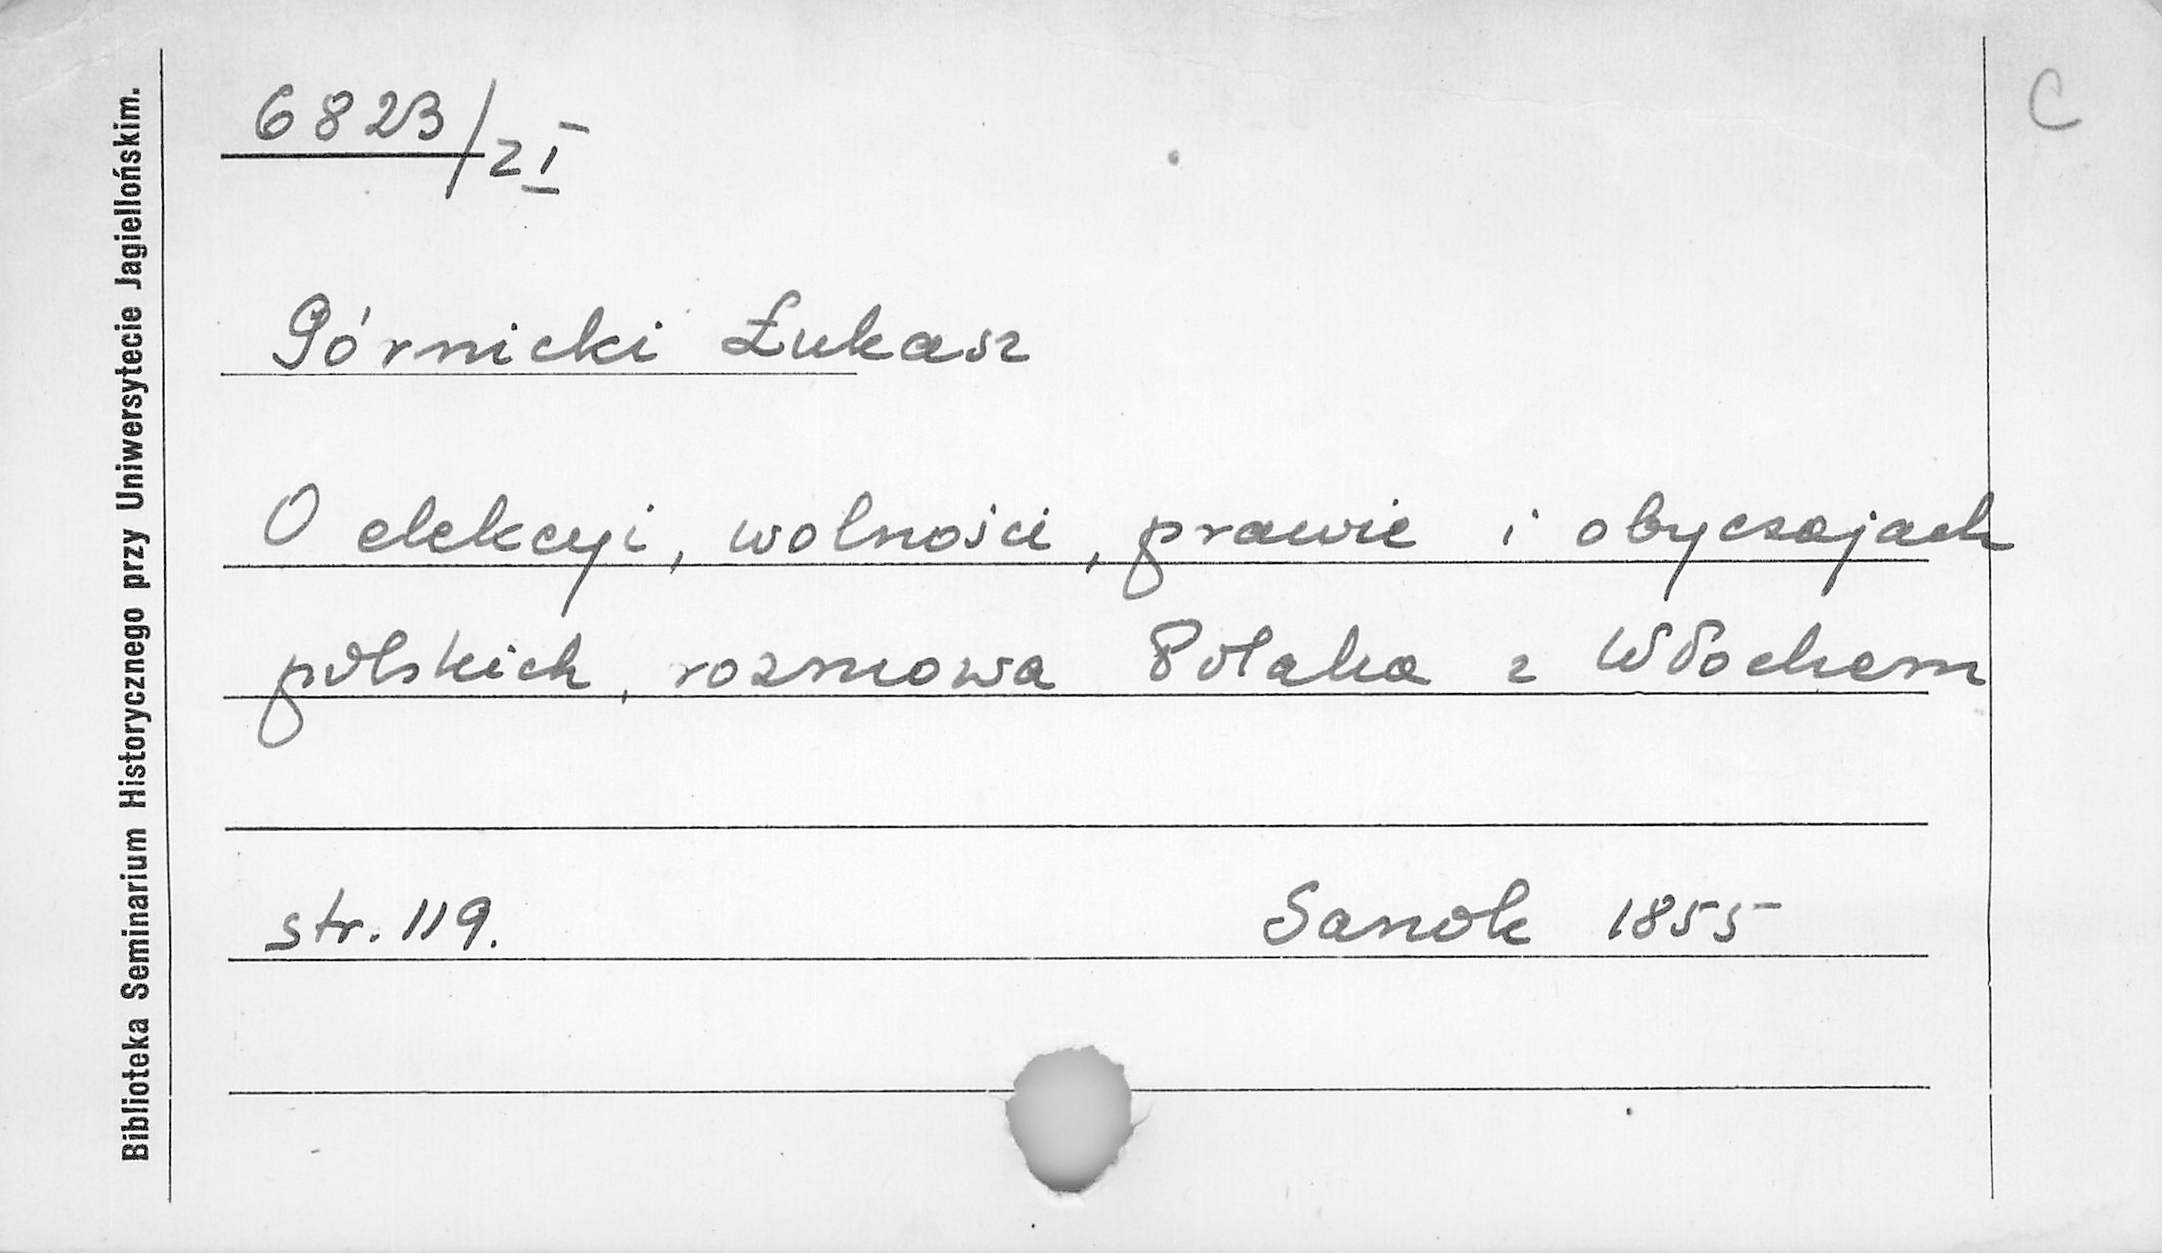 6823/ZI
C
Górnicki Łukasz
O elekcyi, wolności, prawie i obyczajach
polskich, rozmowa Polaka z Włochem
str. 119. Sanok 1855
Biblioteka Seminarium Historycznego przy Uniwersytecie Jagiellońskim.